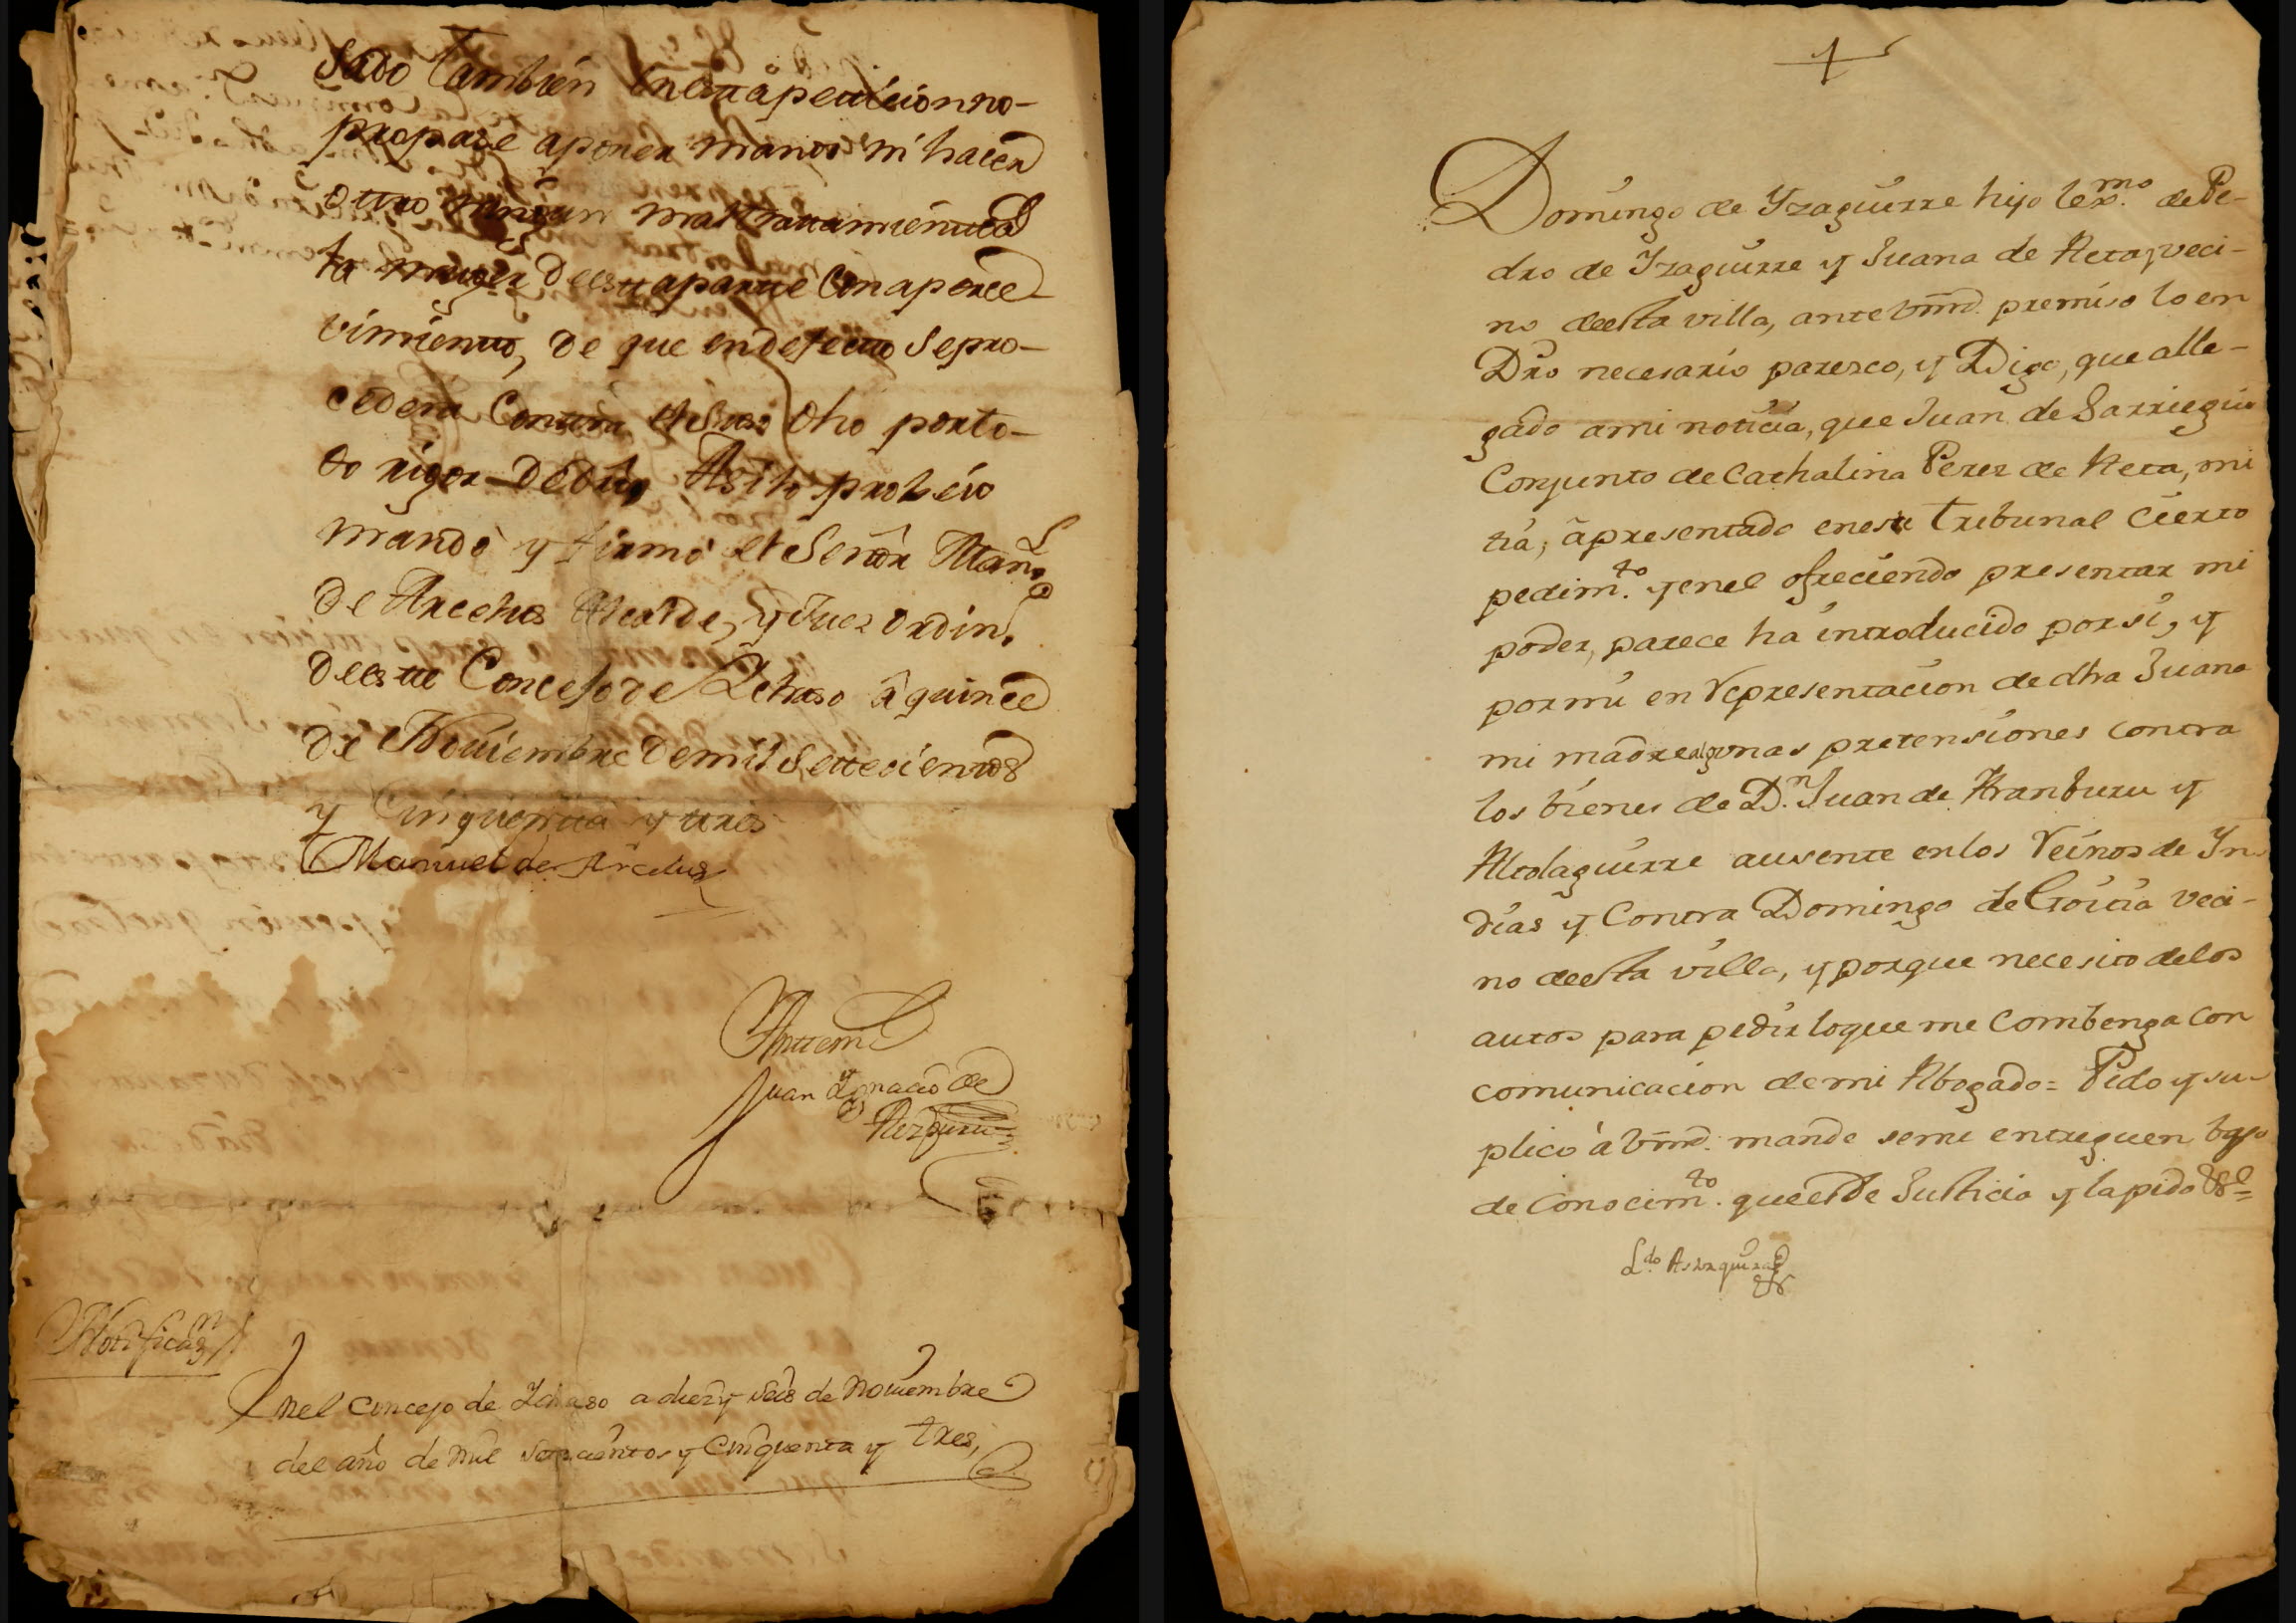 sado tambien en esta peticion no-
propase a poner manos ni hacer
otro ningun maltratamiento a
la muger de esta parte con aperce-
vimiento, de que en defecto se pro-
cedera contra el suso dho por to-
do rigor de dro, Asi lo probeio
mando y firmo el Señor Man.l
de Arcelus Alcalde, y Juez ordin.o
de este Concejo de Ichaso â quince
de Noviembre de mil Settecientos
y Cinquenta y tres
Manuel de Arcelus
Antemi
Juan Ygnacio de
Aizpuru
Notificaz.n
Enel Concejo de Ichaso a diez y seis de Noviembre
del año de mil setecientos y Cinquenta y tres,
Domingo de Yzaguirre hijo lex.mo de Pe-
dro de Yzaguirre y Juana de Aeta, veci-
no deesta villa, ante Vmd. premiso lo en
Dro necesario paresco, y Digo, que a lle-
gado a mi noticia, que Juan de Sarriegui
Conjunto de Cathalina Perez de Aeta, mi
tia, ã presentado eneste tribunal cierto
pedim.to y enel ofreciendo presentar mi
poder, parece ha introducido por si, y
por mi en representacion de dha Juana
mi madre algunas pretensiones contra
los bienes de D.n Juan de Aranburu y
Altolaguirre ausente en los Reinos de Yn-
dias y Contra Domingo de Goitia veci-
no deesta villa, y porque necesito delos
autos para pedir loque me Combenga con
comunicacion de mi Abogado= Pido y su-
plico à Vmd. mande seme entreguen bajo
de Conocim.to que es de Justicia y la pido &a=
L.do